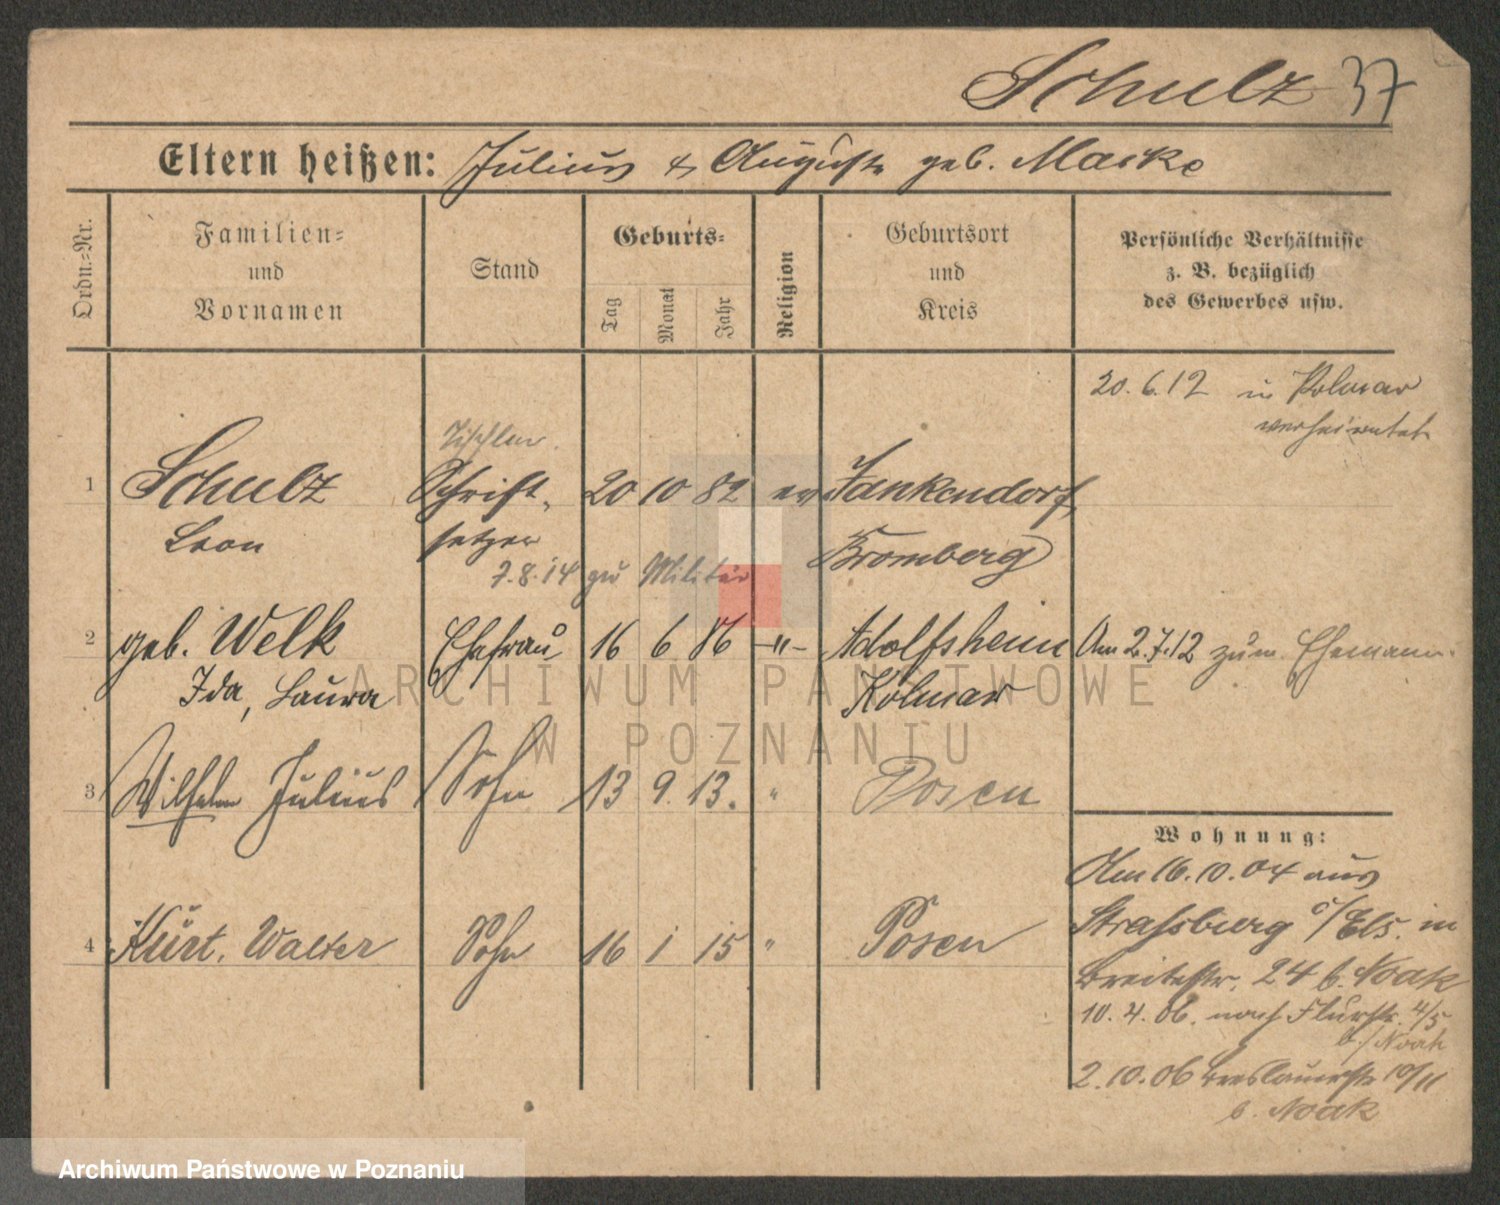 Schulz 37
Eltern heißen: Julius & Auguste geb. Maske
Ordn.-Nr.
Familien-
und
Vornamen
Stand
Geburts-
Tag
Monat
Jahr
Religion
Geburtsort
und
Kreis
Persönliche Verhältnisse
z. B. bezüglich
des Gewerbes usw.
20.6.12 in Kolmar
verheiratet
Tischler.
1 Schulz Schrift- 20 10 82 ev Jankendorf,
Leon setzer Bromberg
7.8.14 zu Militär
2 geb. Welk Ehefrau 16 6 86 -"- Adolfsheim Am 2.7.12 zum Ehemann.
Ida, Laura Kolmar
3 Wilhelm Julius Sohn 13 9. 13. " Posen
4 Kurt. Walter Sohn 16 1 15 " Posen
Wohnung:
Am 16.10.04 aus
Strassburg i/Els. in
Breitestr. 24 b. Noak
10.4.06. nach Flurstr. 4/5
b/Noak
2.10.06 Breslauerstr 10/11
b. Noak
ARCHIWUM PAŃSTWOWE
W POZNANIU
Archiwum Państwowe w Poznaniu